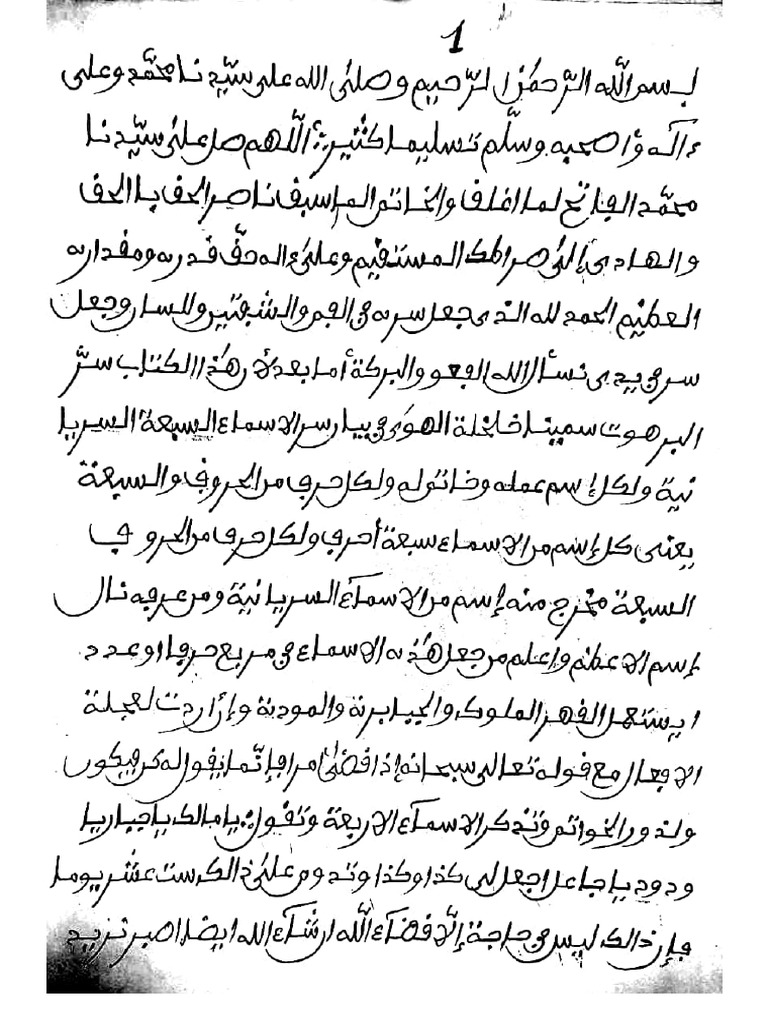 1
بسم الله الرحمن الرحيم وصلى الله على سيدنا محمد وعلى
ءاله وأصحبه وسلم تسليما كثيرا أللهم صل على سيدنا
محمد الفاتح لما اغلق والخاتم لما سبق ناصر الحق با الحق
والهادى إلى صراطك المستقيم وعلى ءاله حق قدره ومقداره
العظيم الحمد لله الذى جعل سره في الفم والشفتين وللسان وجعل
سر في يدى نسأل الله العفو والبركة أما بعد لأن هذا الكتاب سر
البرهوت سمينا خلخلة الهوى في بيان سر الاسماء السبعة السريا
نية ولكل إسم عمله وخاتوله ولكل حرف من الحروف والسبعة
يعنى كل إسم من الاسماء سبعة أحرف ولكل حرف من الحروف
السبعة مخرج منه إسم من الاسماء السريانية ومن عرفه نال
إسم الاعظم وإعلم من جعل هذه الاسماء في مربع حرفا اوعدد
ايستعمل القهر الملوك والجبابرة والمودة وإن أردت لعجلة
الافعال مع قوله تعالى سبحانه إذا قضى امرا فإنما يقول له كن فيكون
ولدور الخواتم وتذكر الاسماء الاربعة وتقول يا مالك يا جبار يا
ودود يا جاعل اجعل لى كذا وكذا وتدوم على ذالك ست عشر يوما
فإن ذالك ليس في حاجة إلا قضاء الله ان شاء الله ايضا اصبر تزيد